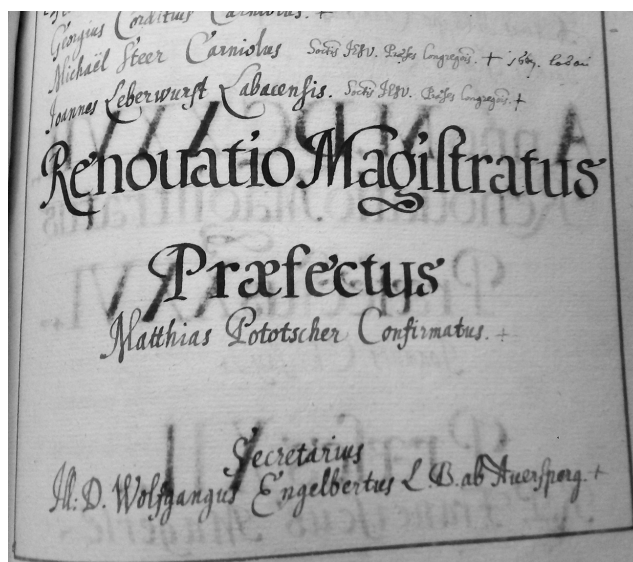 Georgius Corditius Carniolus. +
Michaël Steer Carniolus Soctis IESV. Præses Congregnis. + 1667.
Joannes Leberwurst Labacensis. Soctis IESV. Præses Congregnis. +
Renouatio Magiſtratus
Præfectus
Matthias Pototscher Confirmatus. +
Secretarius
Ill: D. Wolfgangus Engelbertus L. B. ab Auersperg. +